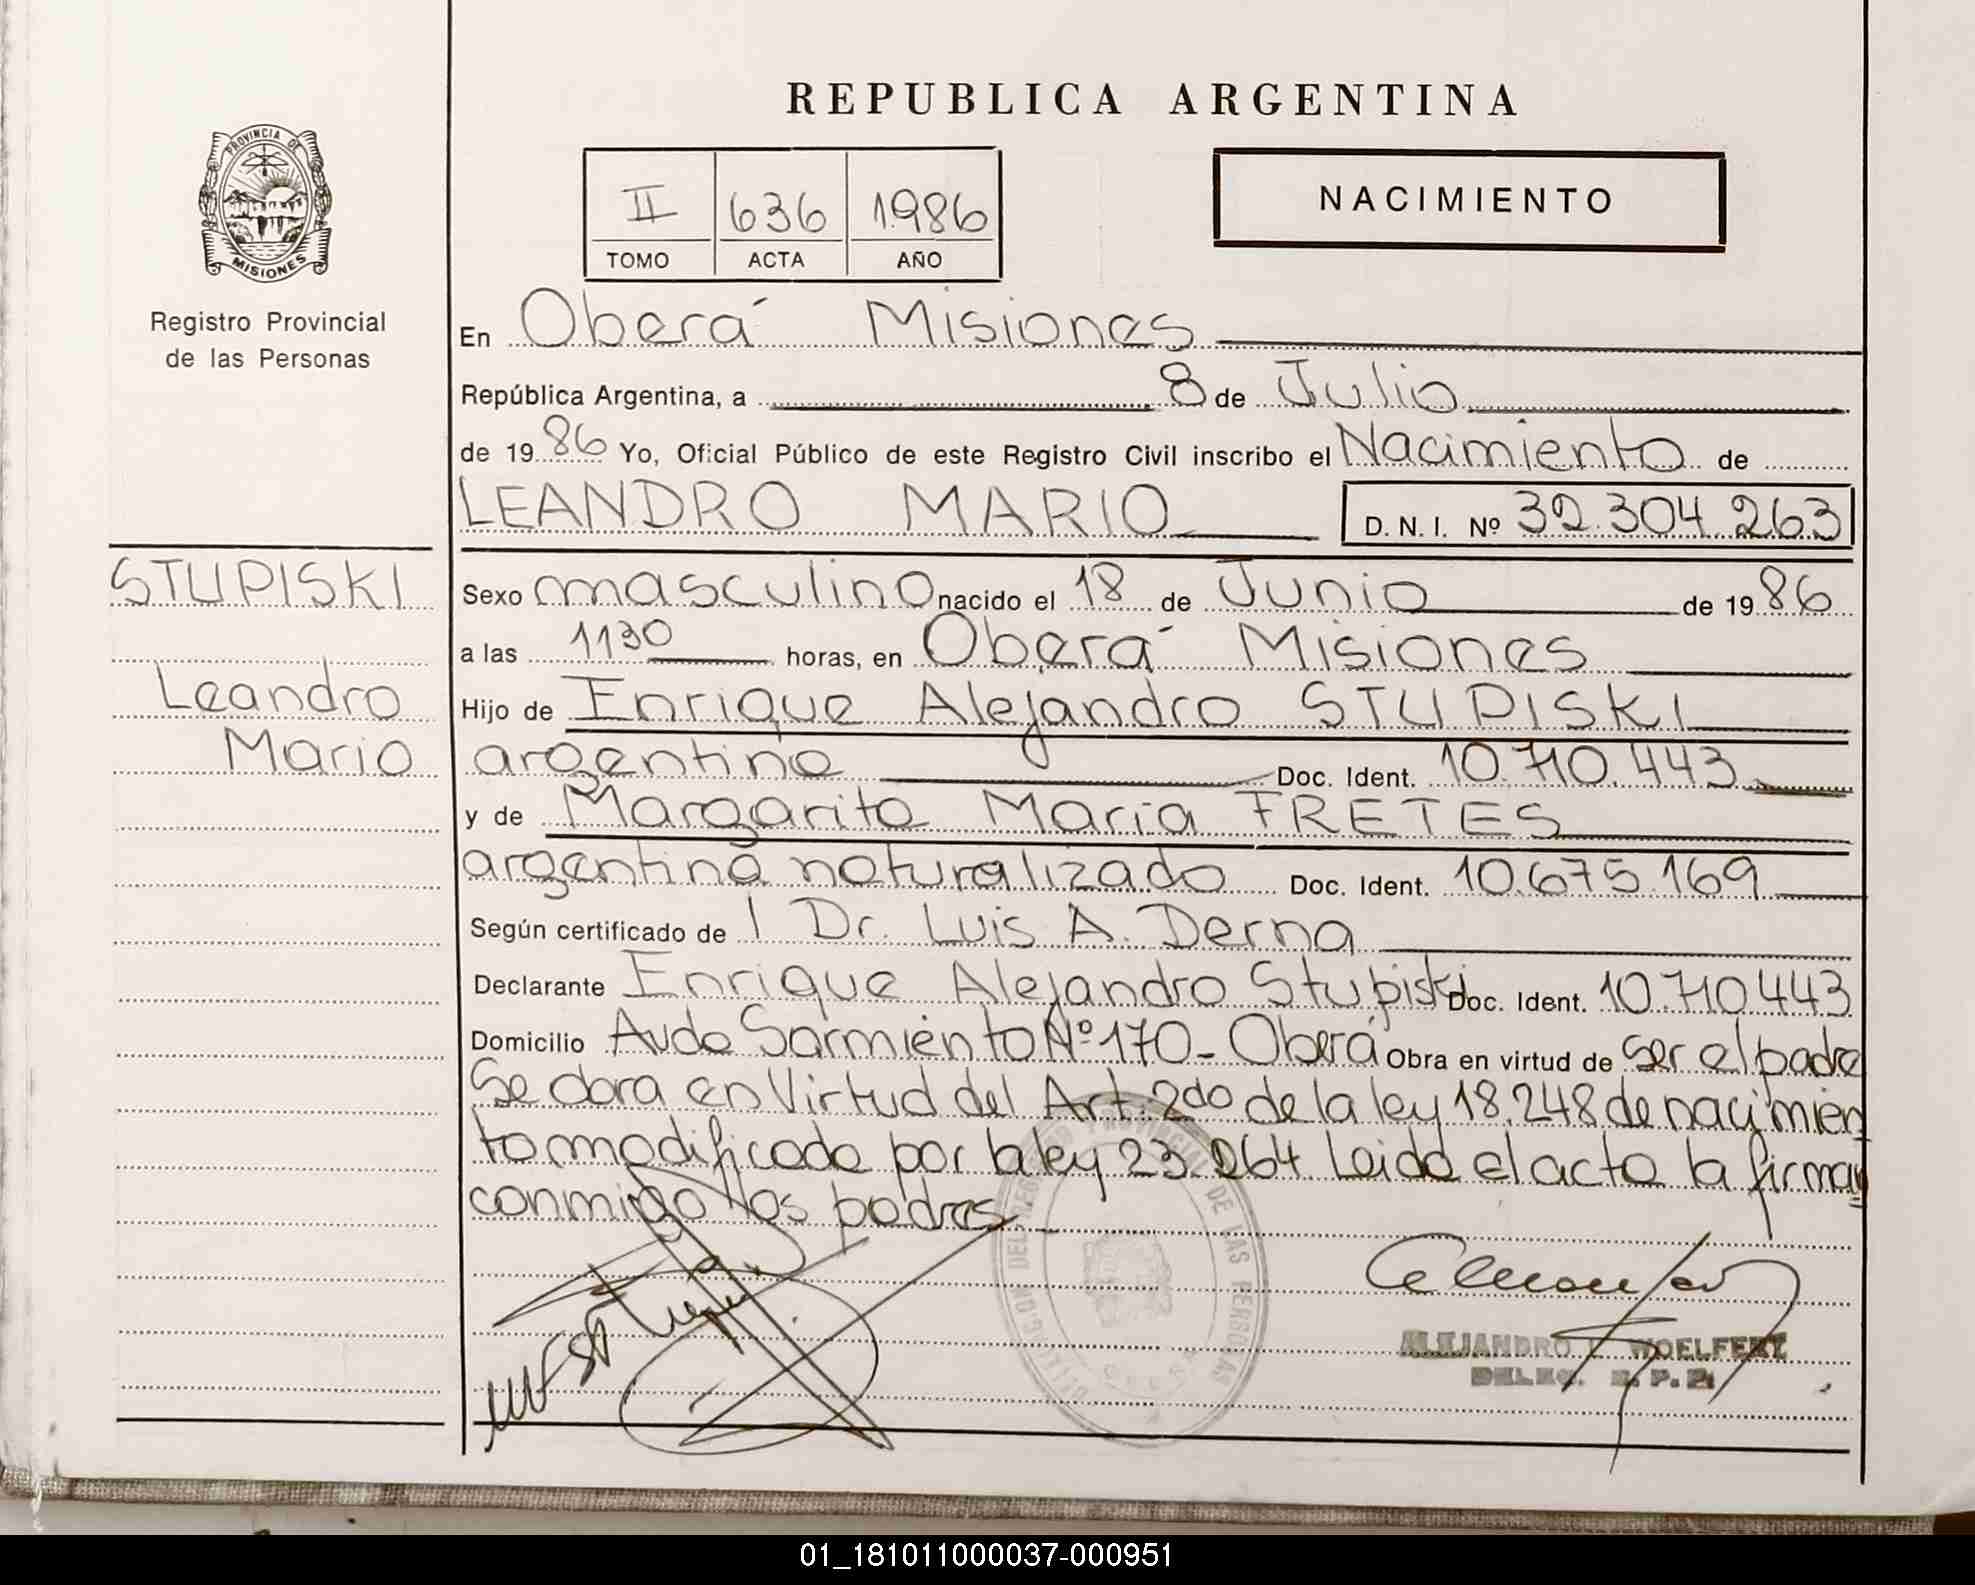 REPUBLICA ARGENTINA
PROVINCIA DE
MISIONES
Registro Provincial
de las Personas
II 636 1986
TOMO ACTA AÑO
NACIMIENTO
En Oberá Misiones
República Argentina, a 8 de Julio
de 1986 Yo, Oficial Público de este Registro Civil inscribo el Nacimiento de
LEANDRO MARIO D. N. I. Nº 32.304.263
STUPISKI
Leandro
Mario
Sexo masculino nacido el 18 de Junio de 1986
a las 1130 horas, en Oberá Misiones
Hijo de Enrique Alejandro STUPISKI
argentino Doc. Ident. 10.710.443
y de Margarita Maria FRETES
argentina naturalizado Doc. Ident. 10.675.169
Según certificado de l Dr. Luis A. Derna
Declarante Enrique Alejandro Stupiski Doc. Ident. 10.710443
Domicilio Avda Sarmiento Nº 170 - Oberá Obra en virtud de ser el padre
Se dara en Virtud del Art. 2do de la ley 18.248 de nacimien
to modificada por la ley 23.264. Leida el acta la firman
conmigo los padres
DEL REGISTRO PROVINCIAL DE LAS PERSONAS
ALEJANDRO L WOELFERT
DELEG. R. P. P.
01_181011000037-000951